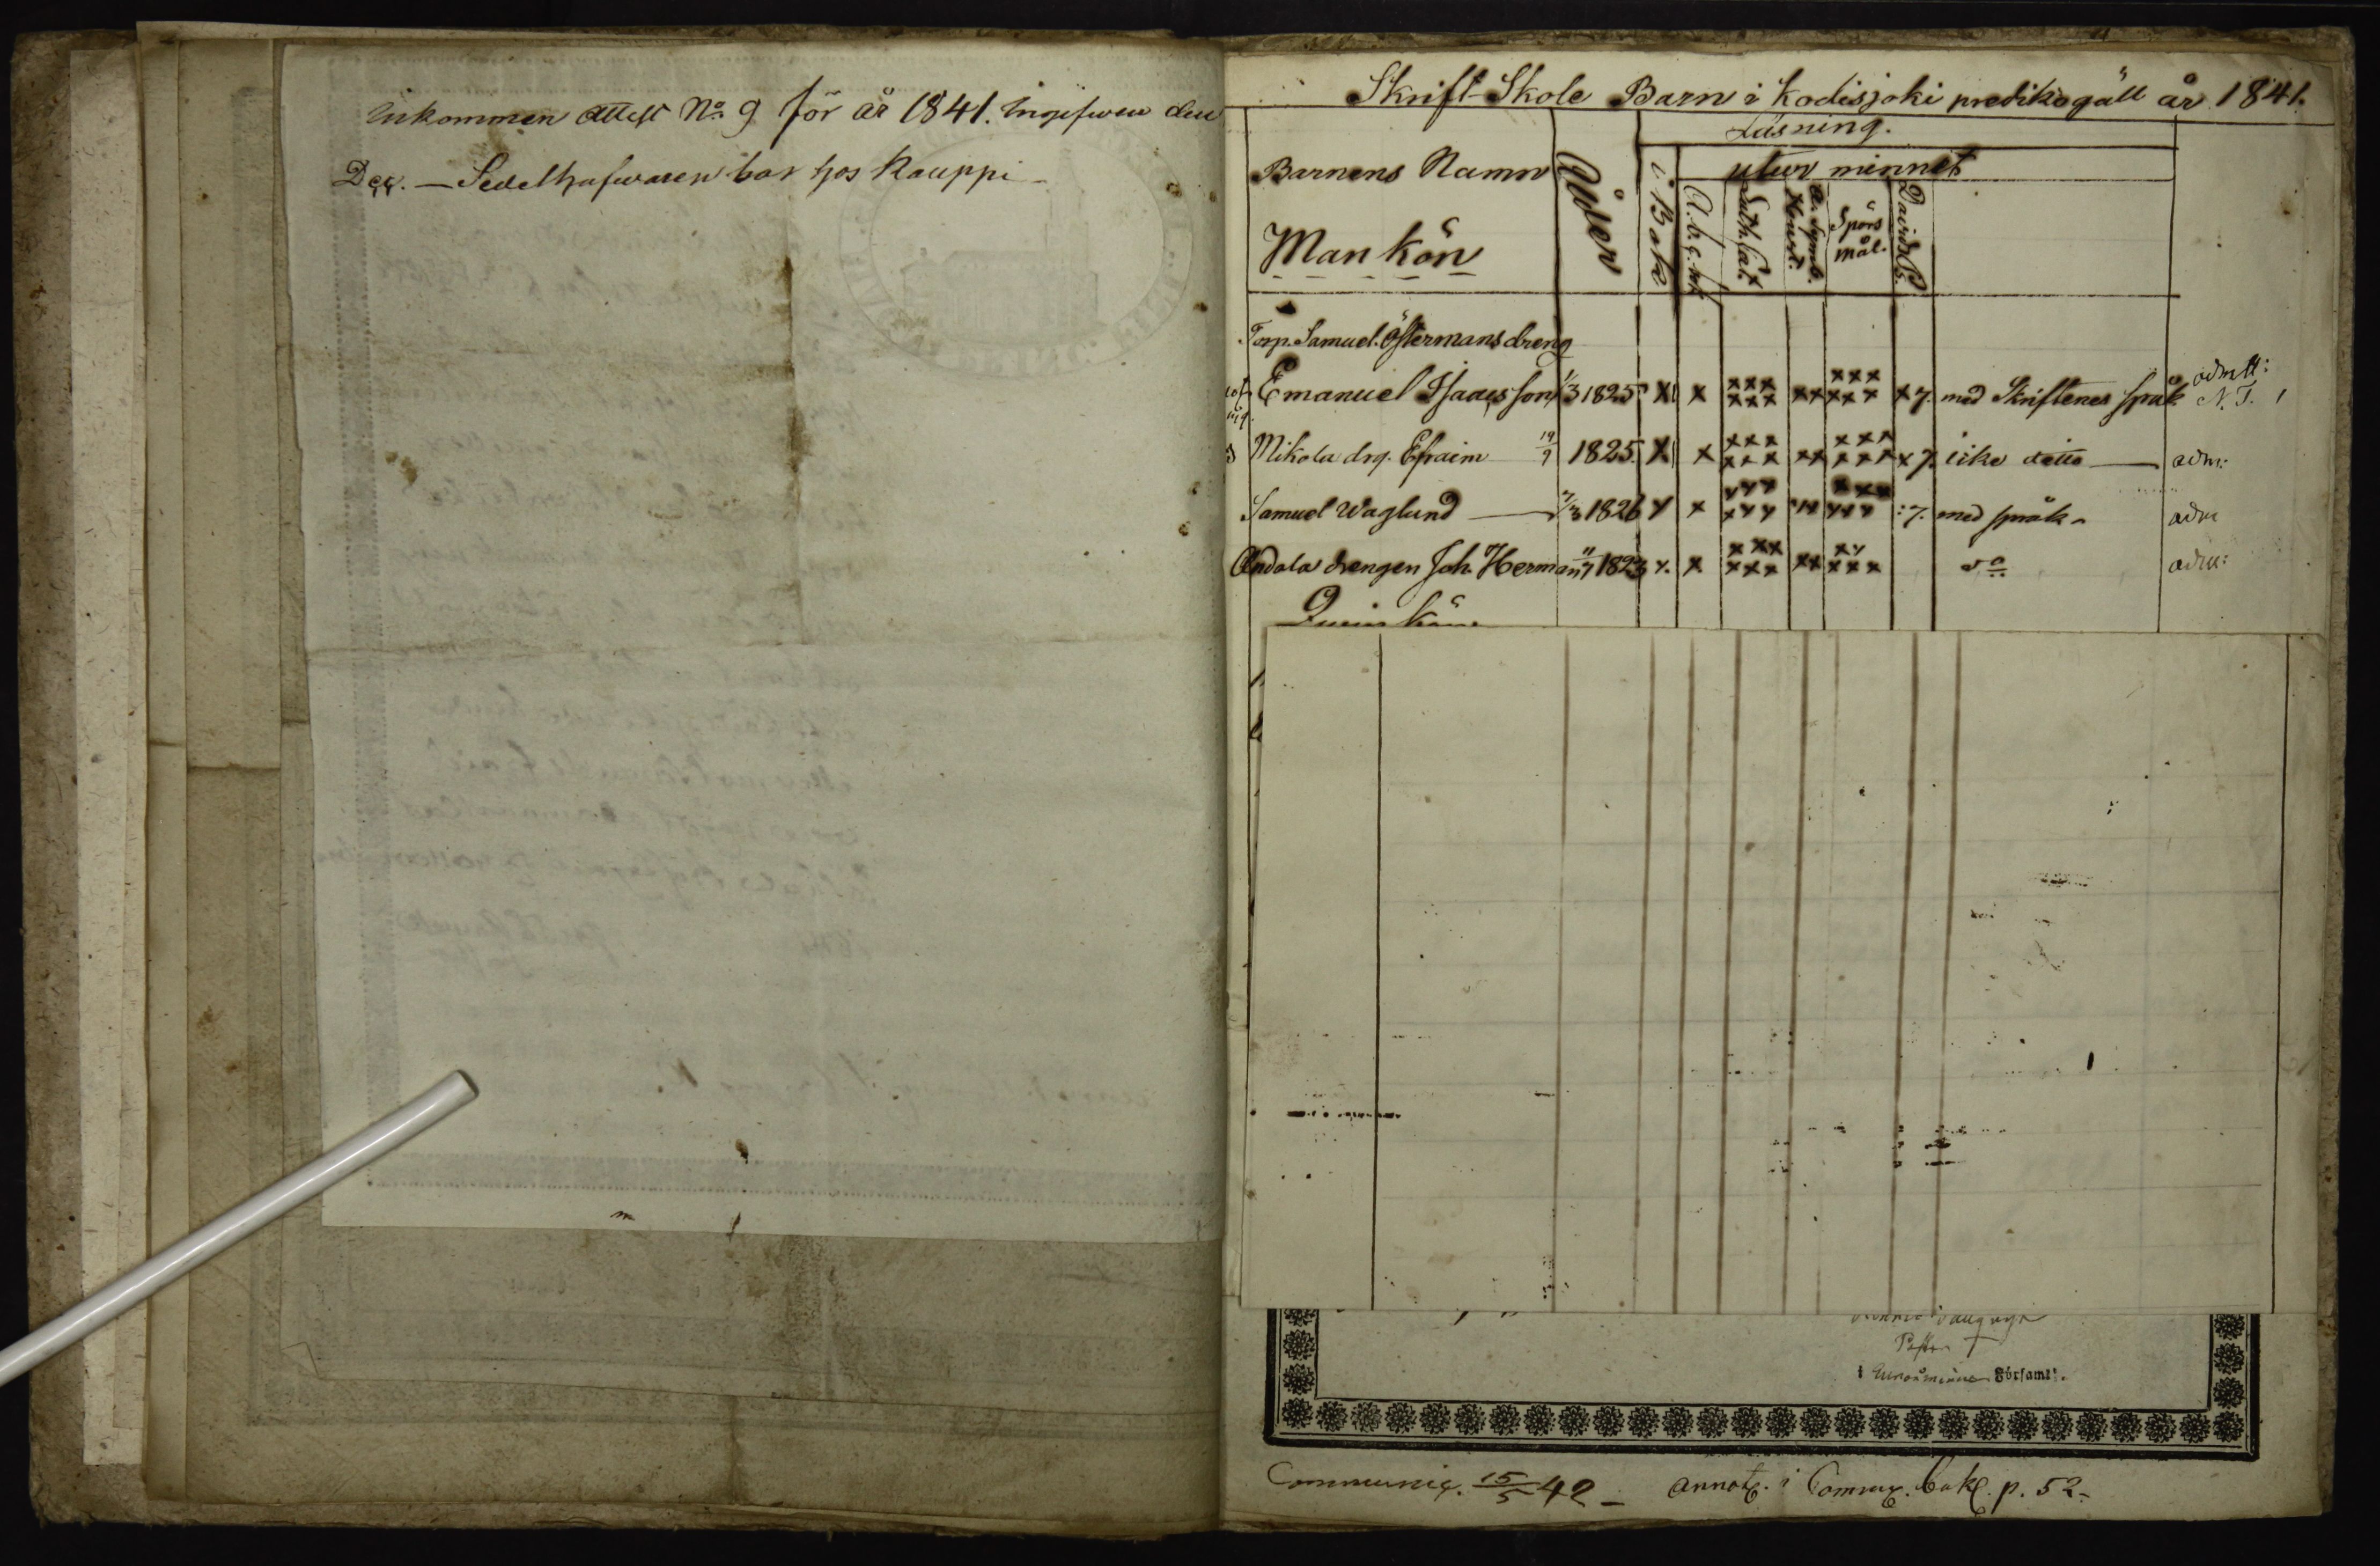 Inkommen attest No. 9 för år 1841. Ingifwen den
Dec. — Sedelhafwaren bor hos Kauppi —
Skrift-Skole Barn i Kodisjoki predikogäll år 1841.
Läsning.
Barnens Namn
Ålder
i Bok
utur minnet
A.b.c. bok
Luth. Cat.
A. Symb.
Spörs
mål.
Davids Ps.
Mankön
Torp. Samuel Östermans dreng
Emanuel Isaacsson 1/3 1825 x x xxx xxx xx xxx xxx x 7. med Skriftenes språk admtt: N.T.
Mikola drg. Efraim 19/9 1825. x x xxx xxx xx xxx xxx x 7. like detto — adm:
Samuel Waglund — 1826 x x xxx xxx xx xxx xxx :7. med språk adm
Andala drengen Joh. Herman 11/7 1823 x. x. xxx xxx xx xx xxx do adm:
Quinskön
Pastor
i Församl:.
Communic. 15/5 42 — annot. i Commun. bok. p. 52.